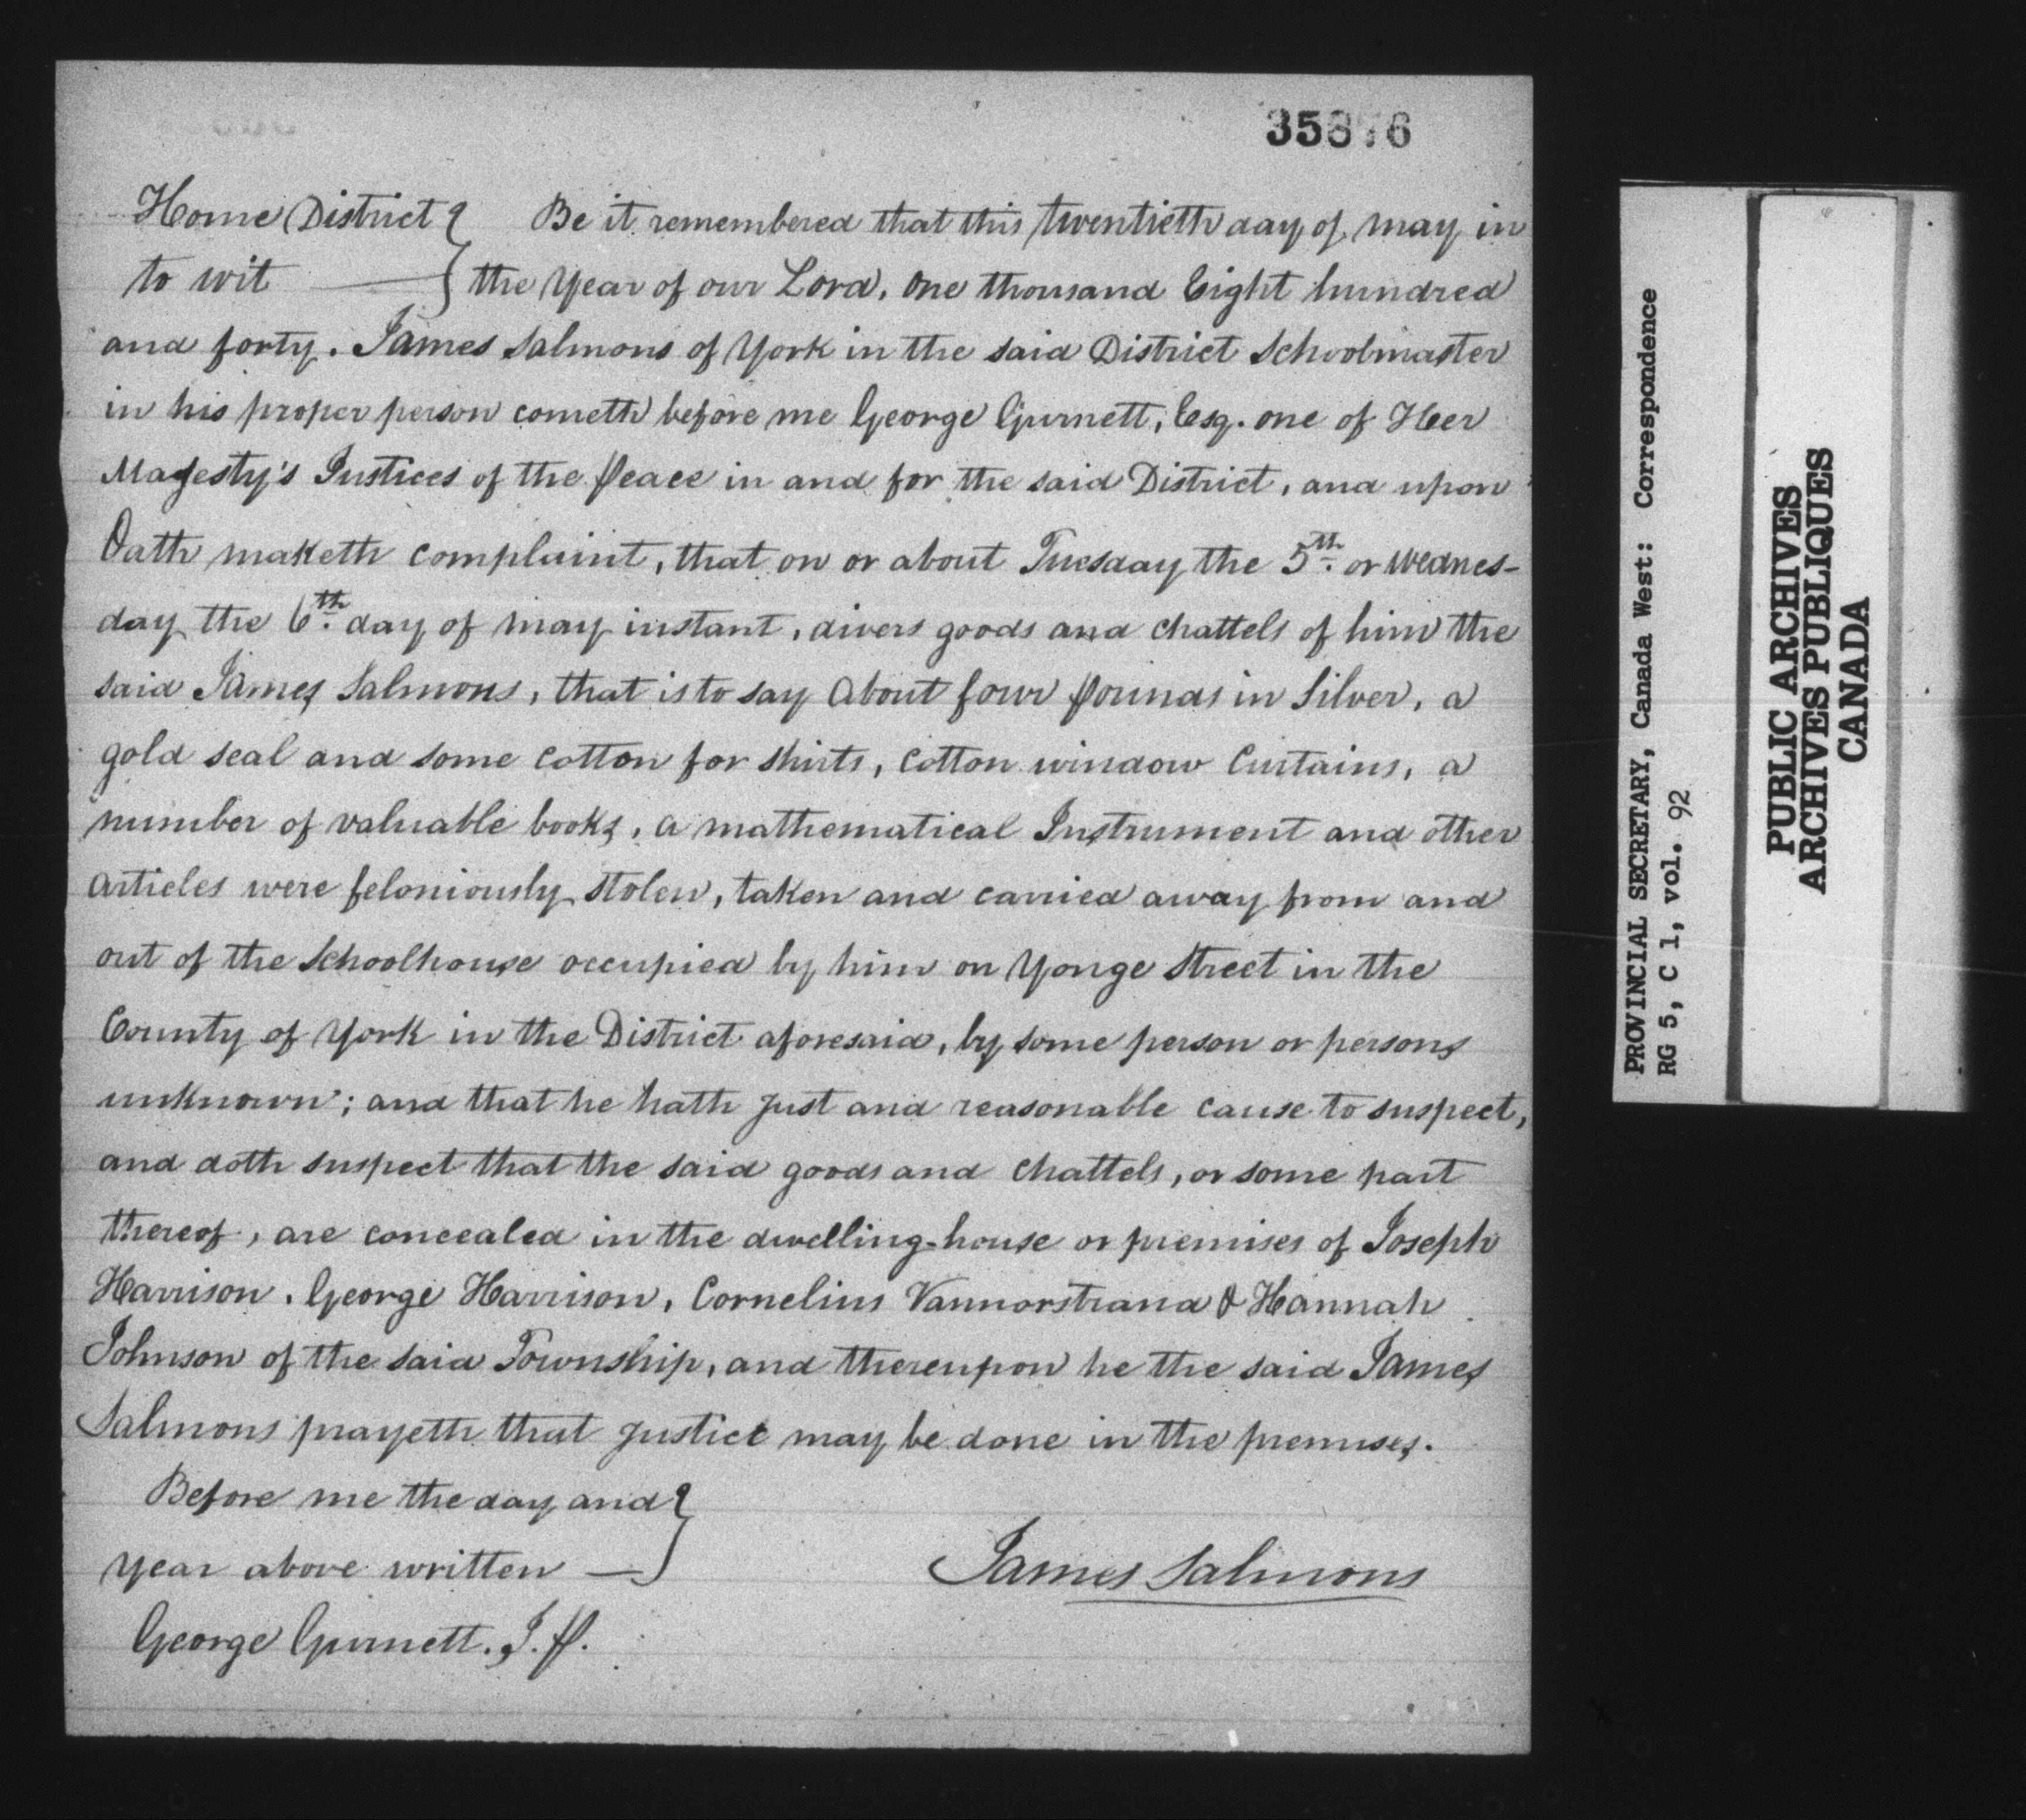 35876
Home District } Be it remembered that this twentieth day of May in
to wit — } the Year of our Lord, One thousand Eight hundred
and forty. James Salmons of York in the said District Schoolmaster
in his proper person cometh before me George Gurnett, Esq. one of Her
Majesty's Justices of the Peace in and for the said District, and upon
Oath maketh complaint, that on or about Tuesday the 5th. or Wednes-
day the 6th. day of May instant, divers goods and chattels of him the
said James Salmons, that is to say About four pounds in Silver, a
gold seal and some cotton for shirts, cotton window Curtains, a
number of valuable books, a mathematical Instrument and other
articles were feloniously stolen, taken and carried away from and
out of the Schoolhouse occupied by him on Yonge Street in the
County of York in the District aforesaid, by some person or persons
unknown; and that he hath just and reasonable cause to suspect,
and doth suspect that the said goods and chattels, or some part
thereof, are concealed in the dwelling-house or premises of Joseph
Harrison, George Harrison, Cornelius Vannorstrand & Hannah
Johnson of the said Township, and thereupon he the said James
Salmons prayeth that justice may be done in the premises.
Before me the day and }
year above written — }
James Salmons
George Gurnett. J.P.
PROVINCIAL SECRETARY, Canada West: Correspondence
RG 5, C 1, vol. 92
PUBLIC ARCHIVES
ARCHIVES PUBLIQUES
CANADA